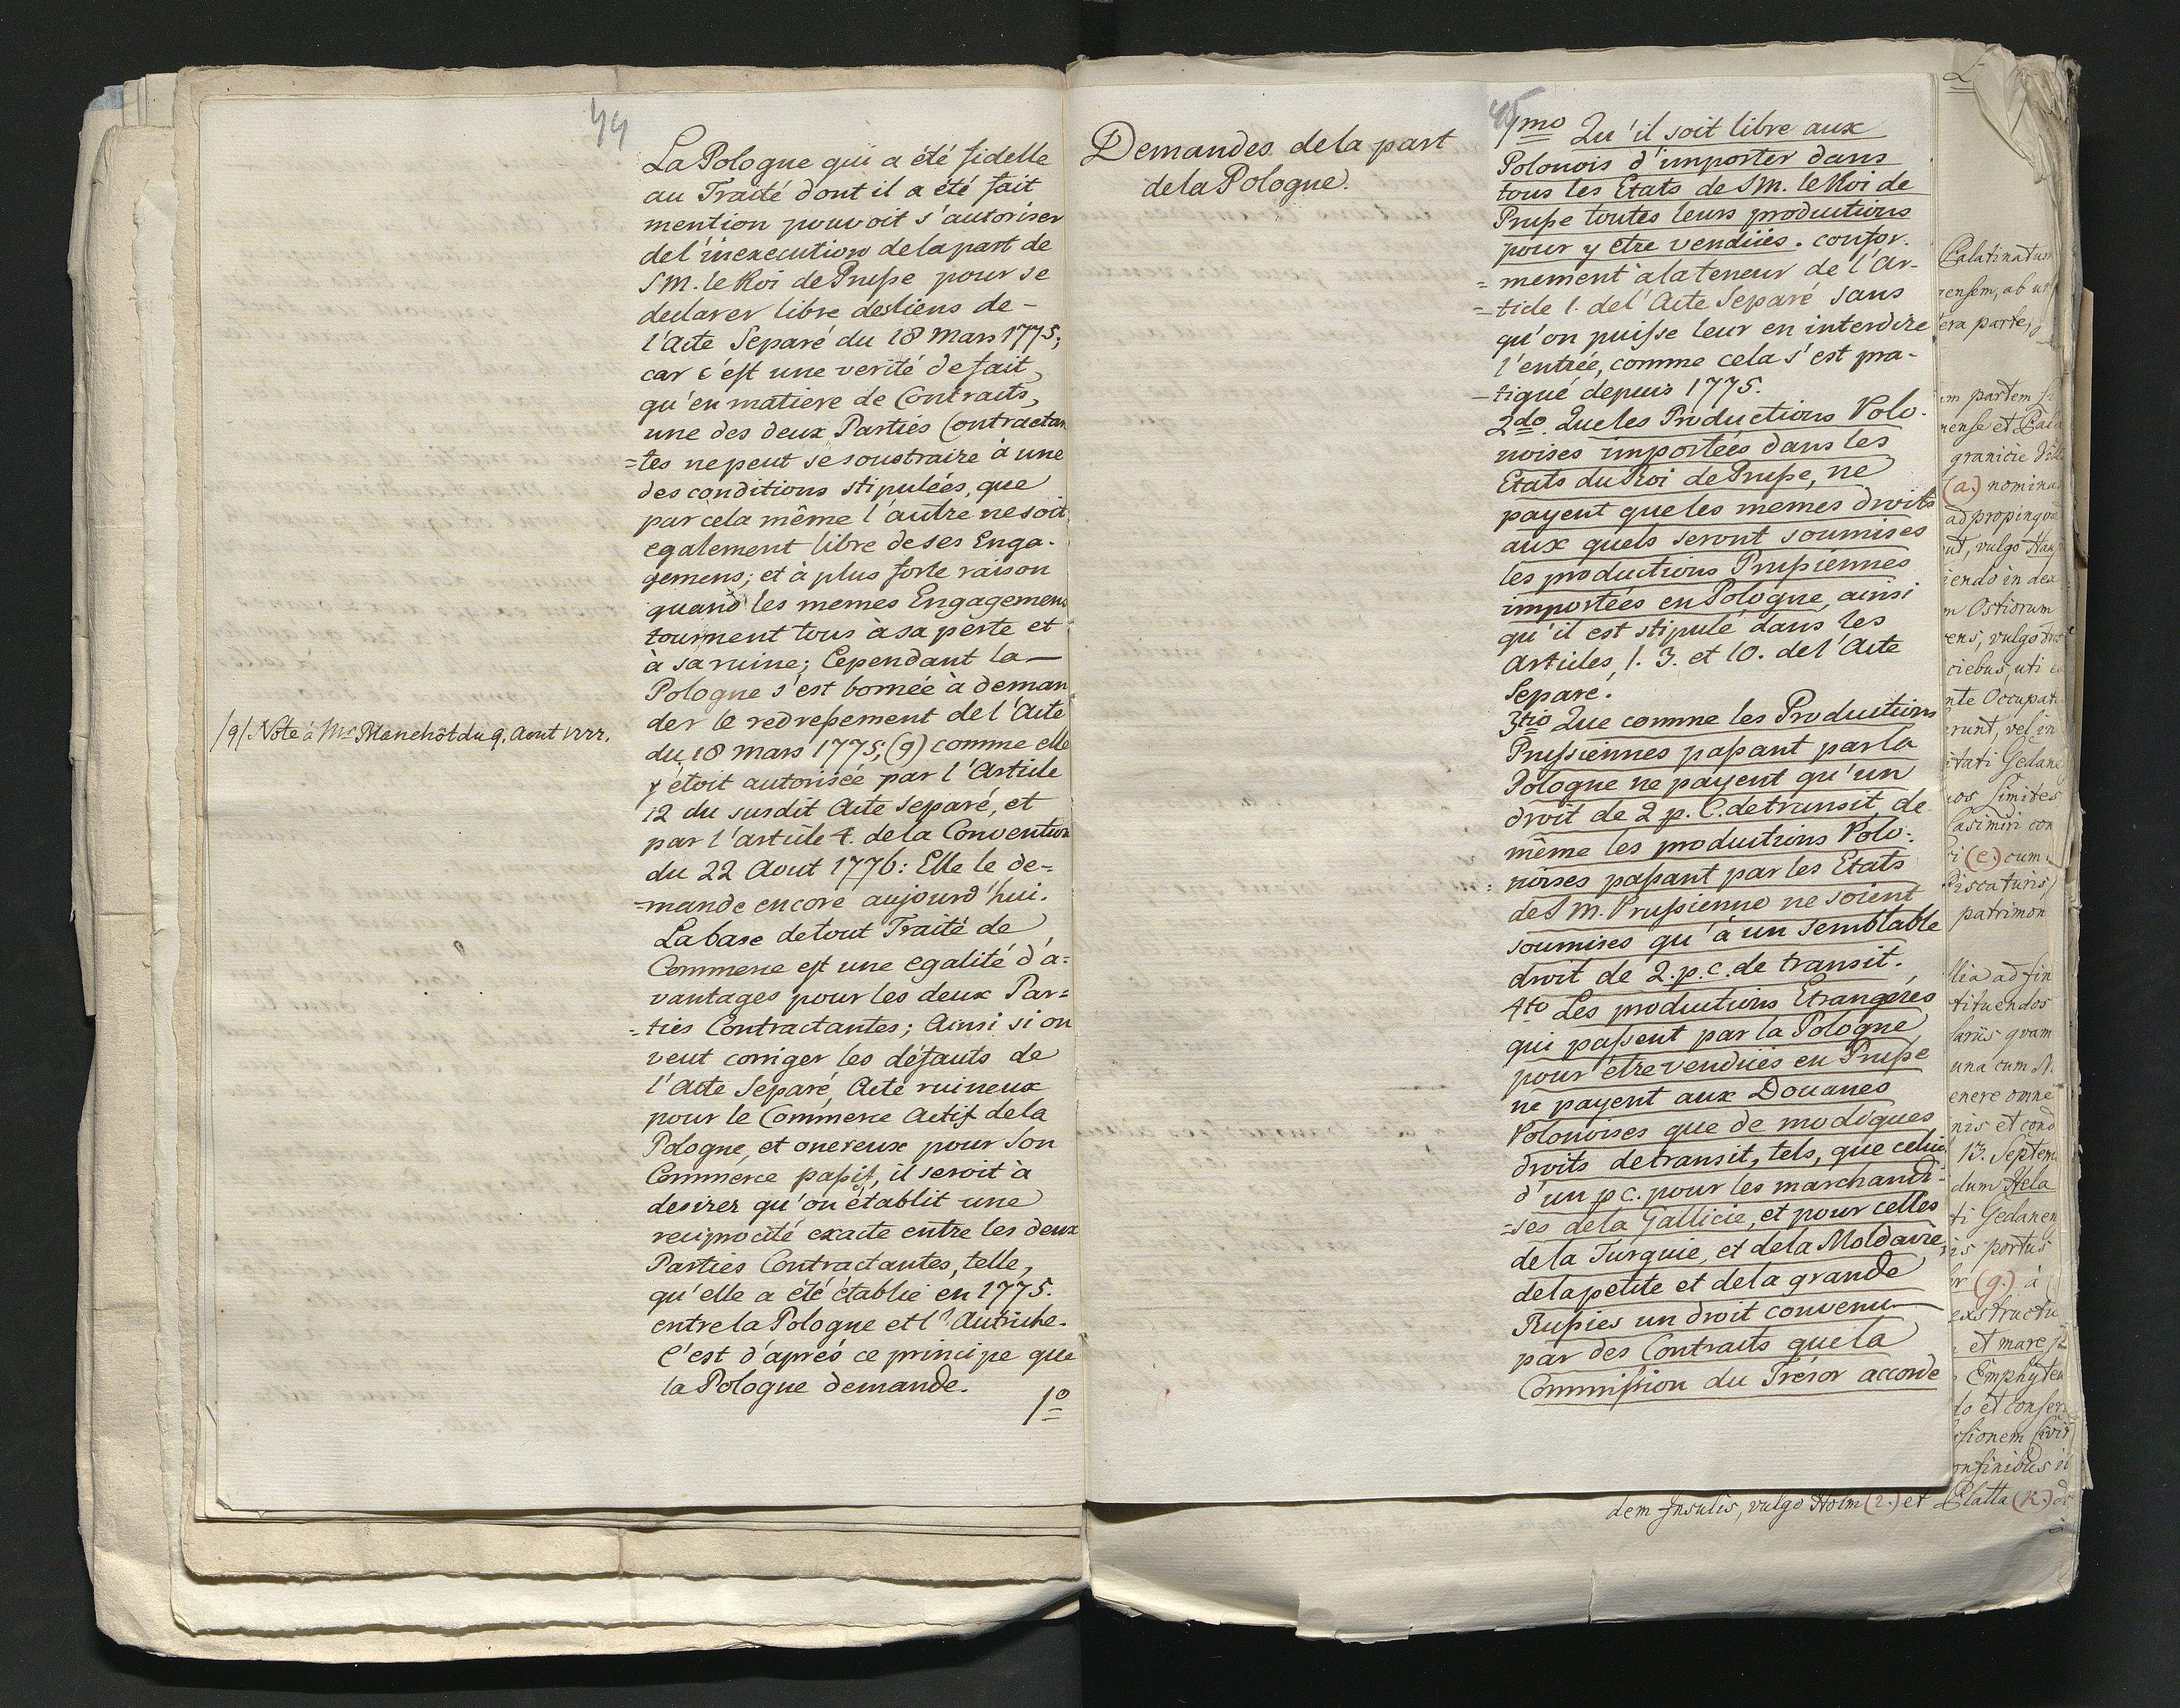 44
La Pologne qui a été fidelle
au Traité dont il a été fait
mention pouvoit s'autoriser
de l'inexecution de la part de
S M. le Roi de Prusse pour se
declarer libre des liens de -
l'Acte Separé du 18 Mars 1775;
car c'est une verité de fait,
qu'en matiere de Contraits,
une des deux Parties Contractan
=tes ne peut se soustraire à une
des conditions stipulées, que
par cela même l'autre ne soit
egalement libre de ses Enga-
gemens; et à plus forte raison
quand les memes Engagemens
tournent tous à sa perte et
à sa ruine; Cependant la —
Pologne s'est bornée à deman
der le redressement de l'Acte
du 18 Mars 1775; (g) comme elle
y étoit autorisée par l'Article
12 du susdit Acte Separé, et
par l'article 4. de la Convention
du 22 Aout 1776: Elle le de=
=mande encore aujourd'hui.
La base de tout Traité de
Commerce est une egalité d'a=
vantages pour les deux Par=
=ties Contractantes; Ainsi si on
veut corriger les défauts de
l'Acte Separé, Acte ruineux
pour le Commerce Actif de la
Pologne, et onereux pour son
Commerce passif, il seroit à
desirer qu'on établit une
reciprocité exacte entre les deux
Parties Contractantes, telle,
qu'elle a été établie en 1775.
entre la Pologne et l'Autriche.
C'est d'aprés ce principe que
la Pologne demande.
1º
/g/ Note à Mr Blanchôt du 9. Aout 1777.
45
Demandes de la part
de la Pologne.
1mo Qu'il soit libre aux
Polonois d'importer dans
tous les Etats de S M. le Roi de
Prusse toutes leurs productions
pour y etre vendües. confor.
=mement à la teneur de l'Ar-
=ticle 1. de l'Acte Separé sans
qu'on puisse leur en interdire
l'entrée, comme cela s'est pra-
-tiqué depuis 1775.
2do Que les Productions Polo-
noises importées dans les
Etats du Roi de Prusse, ne
payent que les memes droits
aux quels seront soumises
les productions Prussiennes
importées en Pologne, ainsi
qu'il est stipulé dans les
Articles, 1. 3. et 10. de l'Acte
Separé.
3tio Que comme les Productions
Prussiennes passant par la
Pologne ne payent qu'un
droit de 2 p. C. de transit, de
même les productions Polo-
=noises passant par les Etats
de S M. Prussienne ne soient
soumises qu'à un semblable
droit de 2. p. c. de transit.
4to Les productions Etrangéres
qui passent par la Pologne,
pour être vendües en Prusse
ne payent aux Douanes
Polonoises que de modiques
droits de transit, tels, que celui
d'un p c. pour les marchandi-
=ses de la Gallicie, et pour celles
de la Turquie, et de la Moldavie,
de la petite et de la grande
Russies un droit convenu —
par des Contraits que la
Commission du Trésor accorde
Palatinatum
rensem, ab
era parte,
m partem
nense et
granicie
(a.) nomina
ad propinqva
ut, vulgo
iendo in dex
m Ostiorum
ens, vulgo
ciebus, uti
nte Occupat
erunt, vel in
itati Gedane
os Limites
Casimiri con
i (e.) cum
Piscaturis,
patrimon
lia ad fin
tituendos
lariis qvam
una cum
enere omne
nis et cond
13. Septem
dum Hela
ti Gedanen
is portus
(g.) à
exstructu
et mare
Emphyteu
do et conser
ssionem
onfinibus
dem Insulis, vulgo Holm (i.) et Platta (K.)